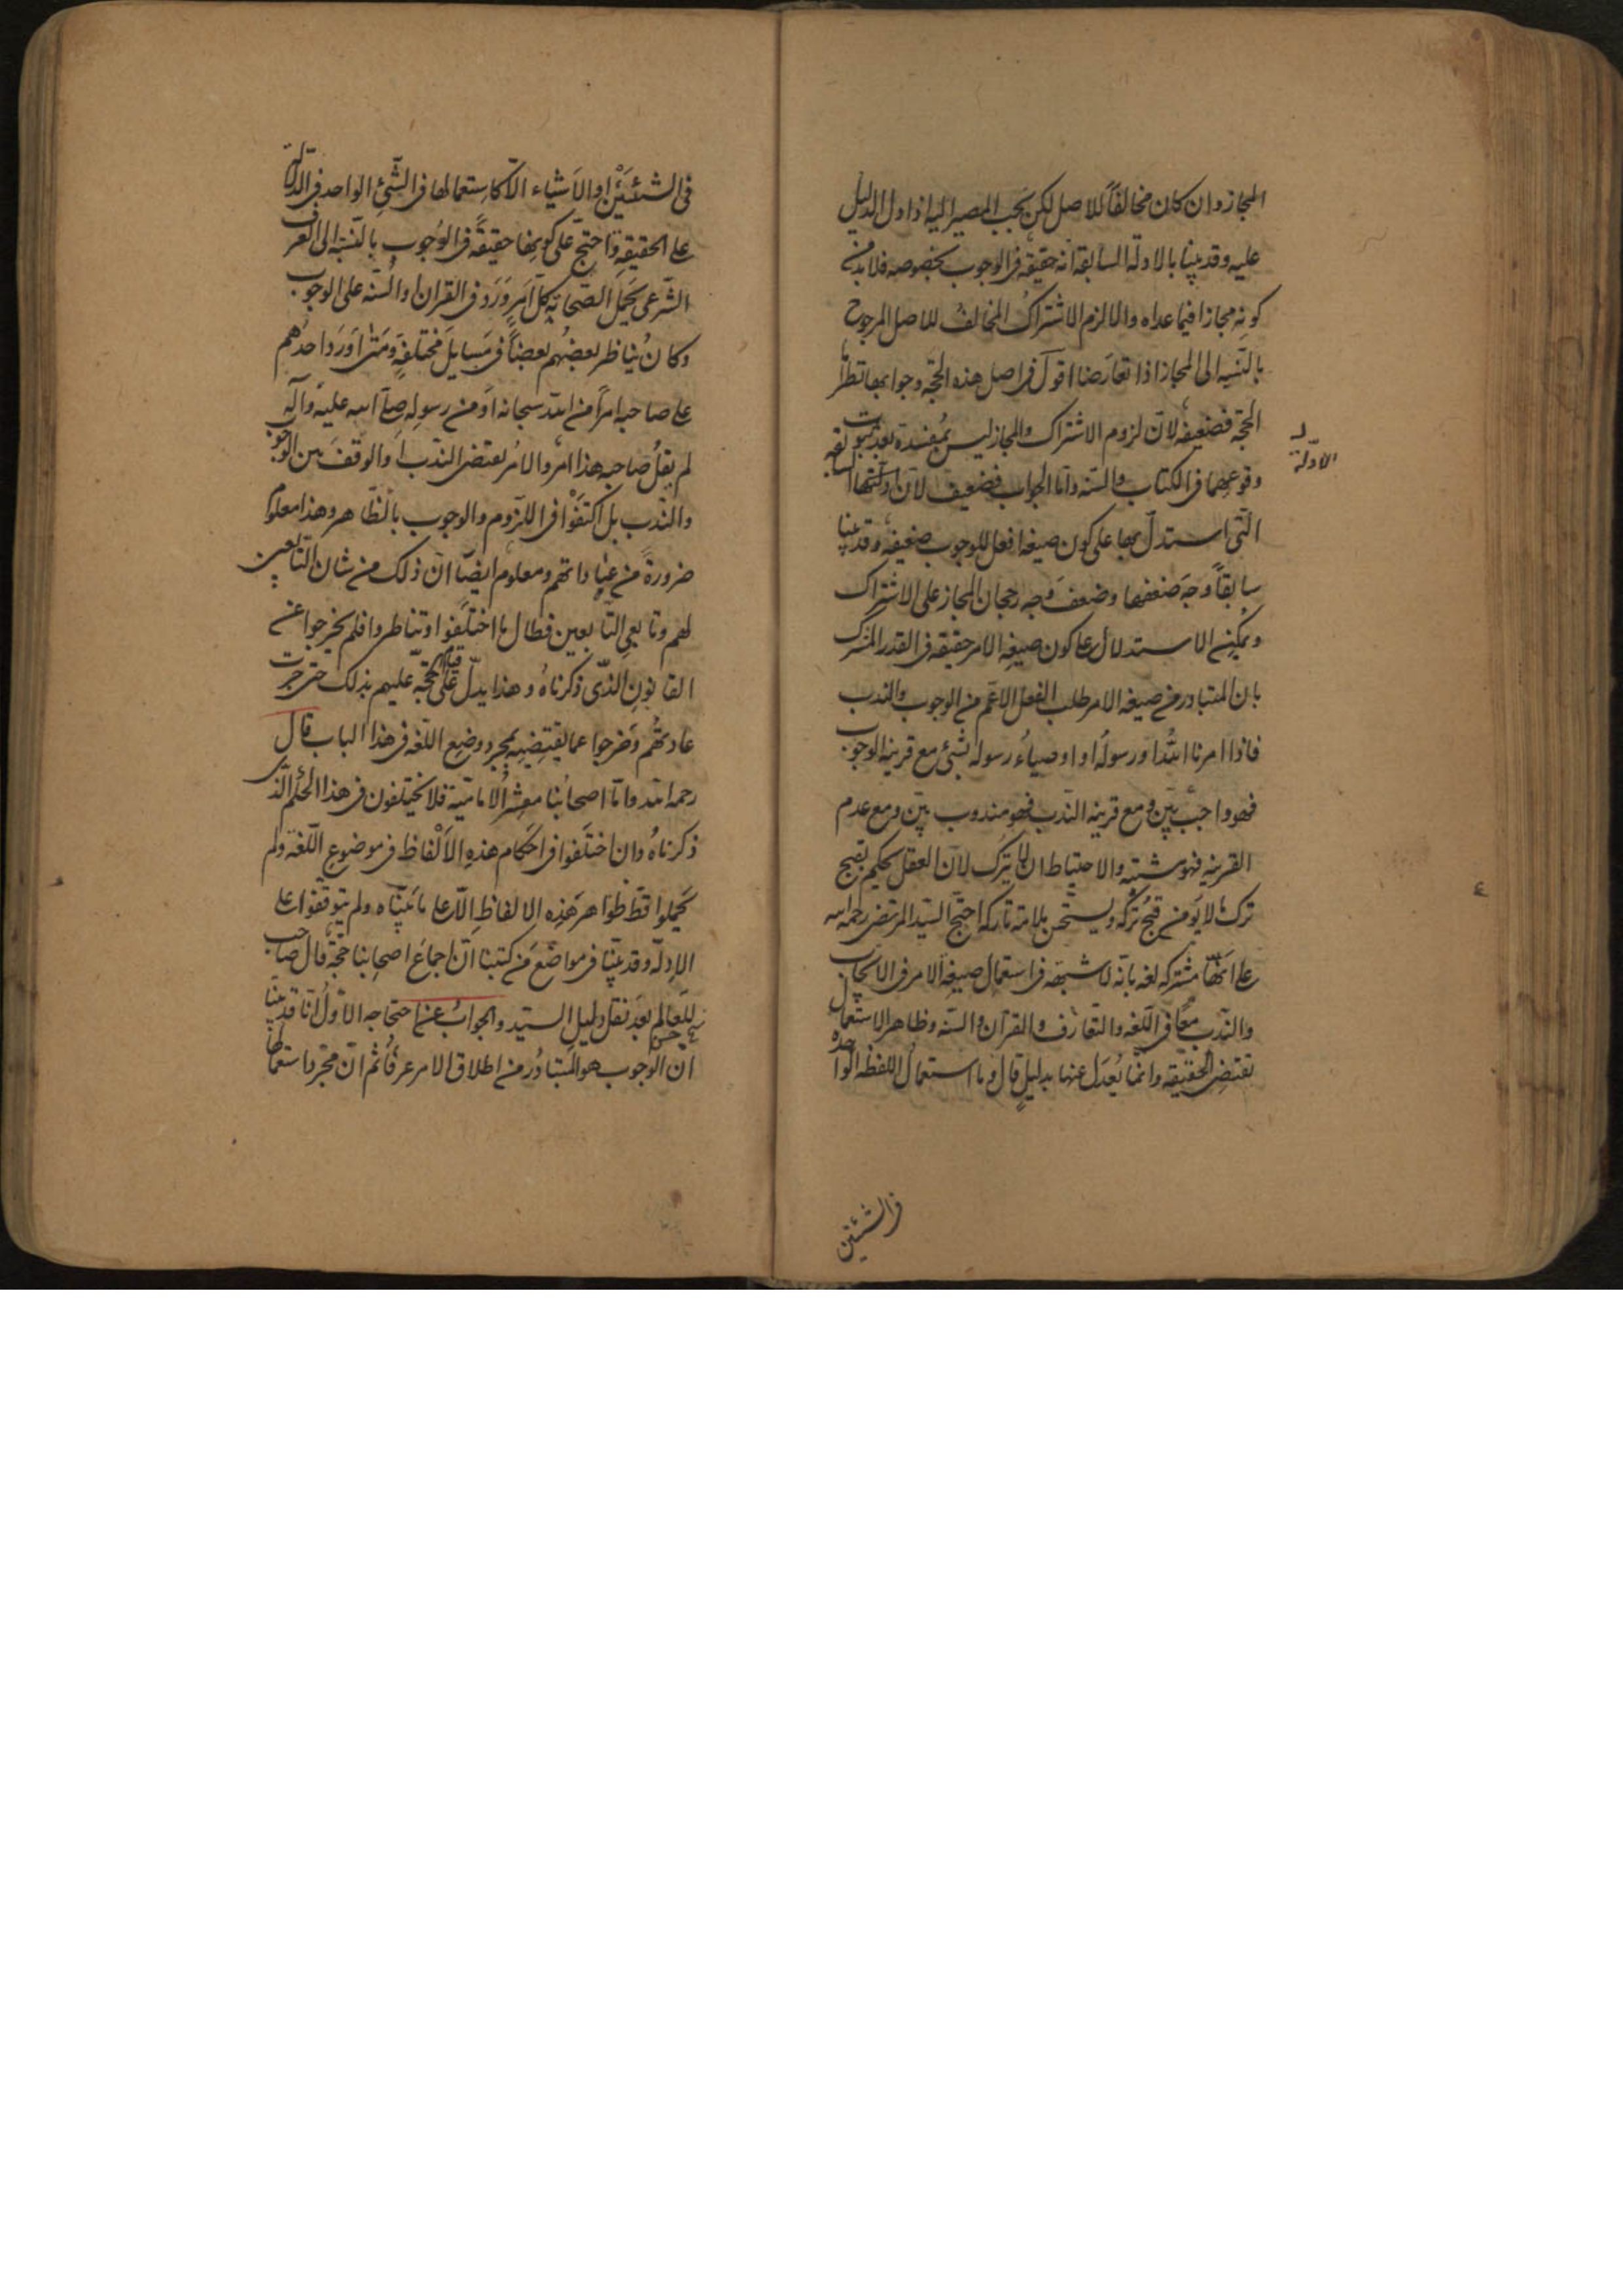 المجاز وان كان مخالفاً للاصل لكن يجب المصير اليه اذا دل الدليل
عليه وقد بينا بالادلة السابقة انه حقيقة فى الوجوب بخصوصه فلا بد من
كونه مجازا فيما عداه والا لزم الاشتراك المخالف للاصل المرجوح
بالنسبة الى المجاز اذا تعارضا اقول فى اصل هذه الحجة وجوابها نظر اما
الحجة فضعيفة لان لزوم الاشتراك والمجاز ليس بمفسدة بعد ثبوت
وقوعهما فى الكتاب والسنة واما الجواب فضعيف لان ادلتها السابقة
الادلة
التى استدل بها على كون صيغة افعل للوجوب ضعيفة وقد بينا
سابقاً وجه ضعفها وضعف وجه رجحان المجاز على الاشتراك
ويمكن الاستدلال على كون صيغة الامر حقيقة فى القدر المشترك
بان المتبادر من صيغة الامر طلب الفعل الاعم من الوجوب والندب
فاذا امرنا الله او رسوله او اوصياء رسوله بشئ مع قرينة الوجوب
فهو واجب بين ومع قرينة الندب فهو مندوب بين ومع عدم
القرينة فهو مشتبه والاحتياط ان لا يترك لان العقل يحكم بقبح
ترك ما لا يؤمن قبح تركه ويستحسن ملامة تاركه احتج السيد المرتضى رحمه الله
على انها مشتركة لغة بانه لا شبهة فى استعمال صيغة الامر فى الايجاب
والندب معاً فى اللغة والتعارف والقرآن والسنة وظاهر الاستعمال
تقتضى الحقيقة وانما يعدل عنها بدليل قال وما استعمال اللفظة الواحدة
فى الشيئين
فى الشيئين او الاشياء الا كاستعمالها فى الشئ الواحد فى الدلالة
على الحقيقة واحتج على كونها حقيقةً فى الوجوب بالنسبة الى العرف
الشرعى بحمل الصحابة كل امر ورد فى القران او السنة على الوجوب
وكان يناظر بعضهم بعضاً فى مسايل مختلفة ومتى اورد احدهم
على صاحبه امراً من الله سبحانه او من رسوله صلى الله عليه وآله
لم يقل صاحبه هذا امر والامر يقتضى الندب او الوقف بين الوجوب
والندب بل اكتفوا فى اللزوم والوجوب بالظاهر وهذا معلوم
ضرورة من عاداتهم ومعلوم ايضاً ان ذلك من شان التابعين
لهم وتابعى التابعين فطال ما اختلفوا وتناظروا فلم يخرجوا عن
القانون الذى ذكرناه وهذا يدل على قيام الحجة عليهم بذلك حتى جرت
عادتهم وخرجوا عما يقتضيه مجرد وضع اللغة فى هذا الباب قال
رحمه الله واما اصحابنا معشر الامامية فلا يختلفون فى هذا الحكم الذى
ذكرناه وان اختلفوا فى احكام هذه الالفاظ فى موضوع اللغة ولم
يحملوا قط ظواهر هذه الالفاظ الا على ما بيناه ولم يتوقفوا على
الادلة وقد بينا فى مواضع من كتبنا ان اجماع اصحابنا حجة قال صاحب
المعالم بعد نقل دليل السيد والجواب عن احتجاجه الاول انا قد بينا
ان الوجوب هو المتبادر من اطلاق الامر عرفاً ثم ان مجرد استعمالها